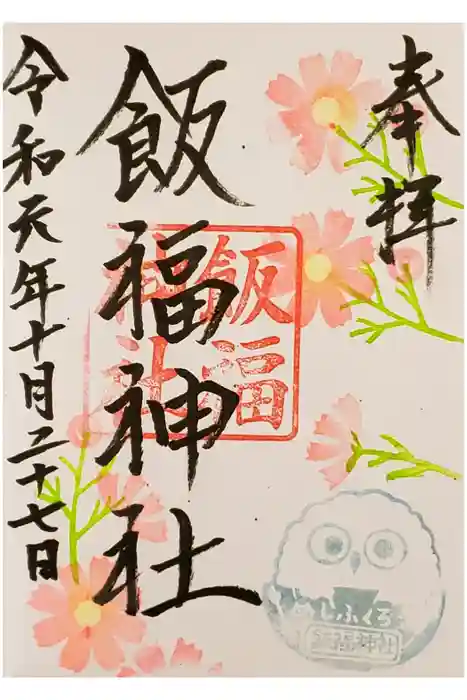 奉拝
飯福神社
飯福
神社
令和元年十月二十七日
飯福神社